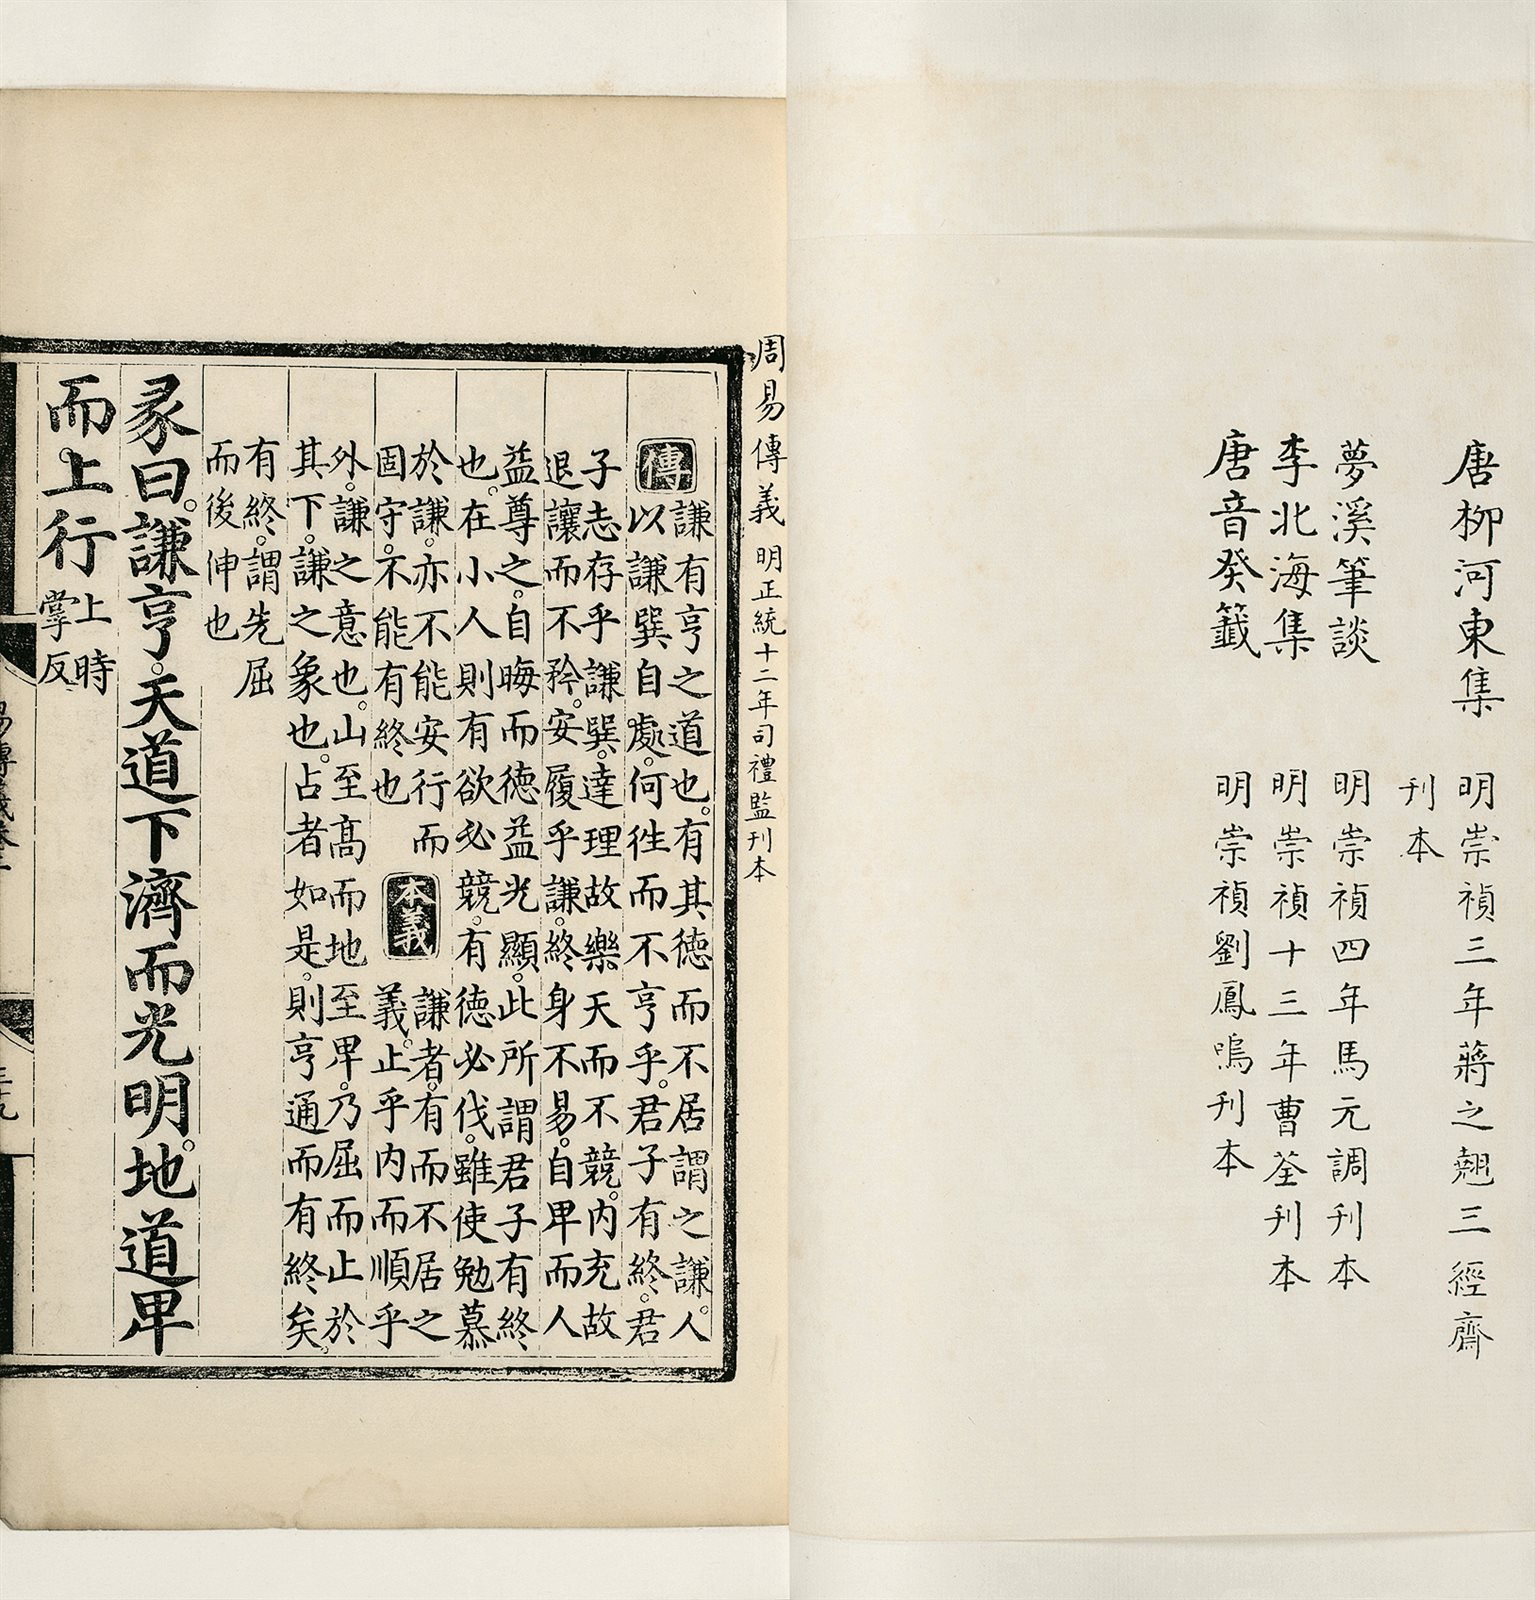 唐柳河東集 明崇禎三年蔣之翹三經齋
刊本
夢溪筆談 明崇禎四年馬元調刊本
李北海集 明崇禎十三年曹荃刊本
唐音癸籤 明崇禎劉鳳鳴刊本
周易傳義 明正統十二年司禮監刊本
傳
謙有亨之道也。有其德而不居謂之謙。人
以謙巽自處。何徃而不亨乎。君子有終。君
子志存乎謙巽。達理故樂天而不競。内充故
退讓而不矜。安履乎謙。終身不易。自卑而人
益尊之。自晦而德益光顯。此所謂君子有終
也。在小人則有欲必競。有德必伐。雖使勉慕
於謙。亦不能安行而
固守。不能有終也
本義
謙者。有而不居之
義。止乎内而順乎
外。謙之意也。山至高而地至卑。乃屈而止於
其下。謙之象也。占者如是。則亨通而有終矣。
有終。謂先屈
而後伸也
彖曰。謙亨。天道下濟而光明。地道卑
而上行 上時
掌反
易傳義卷